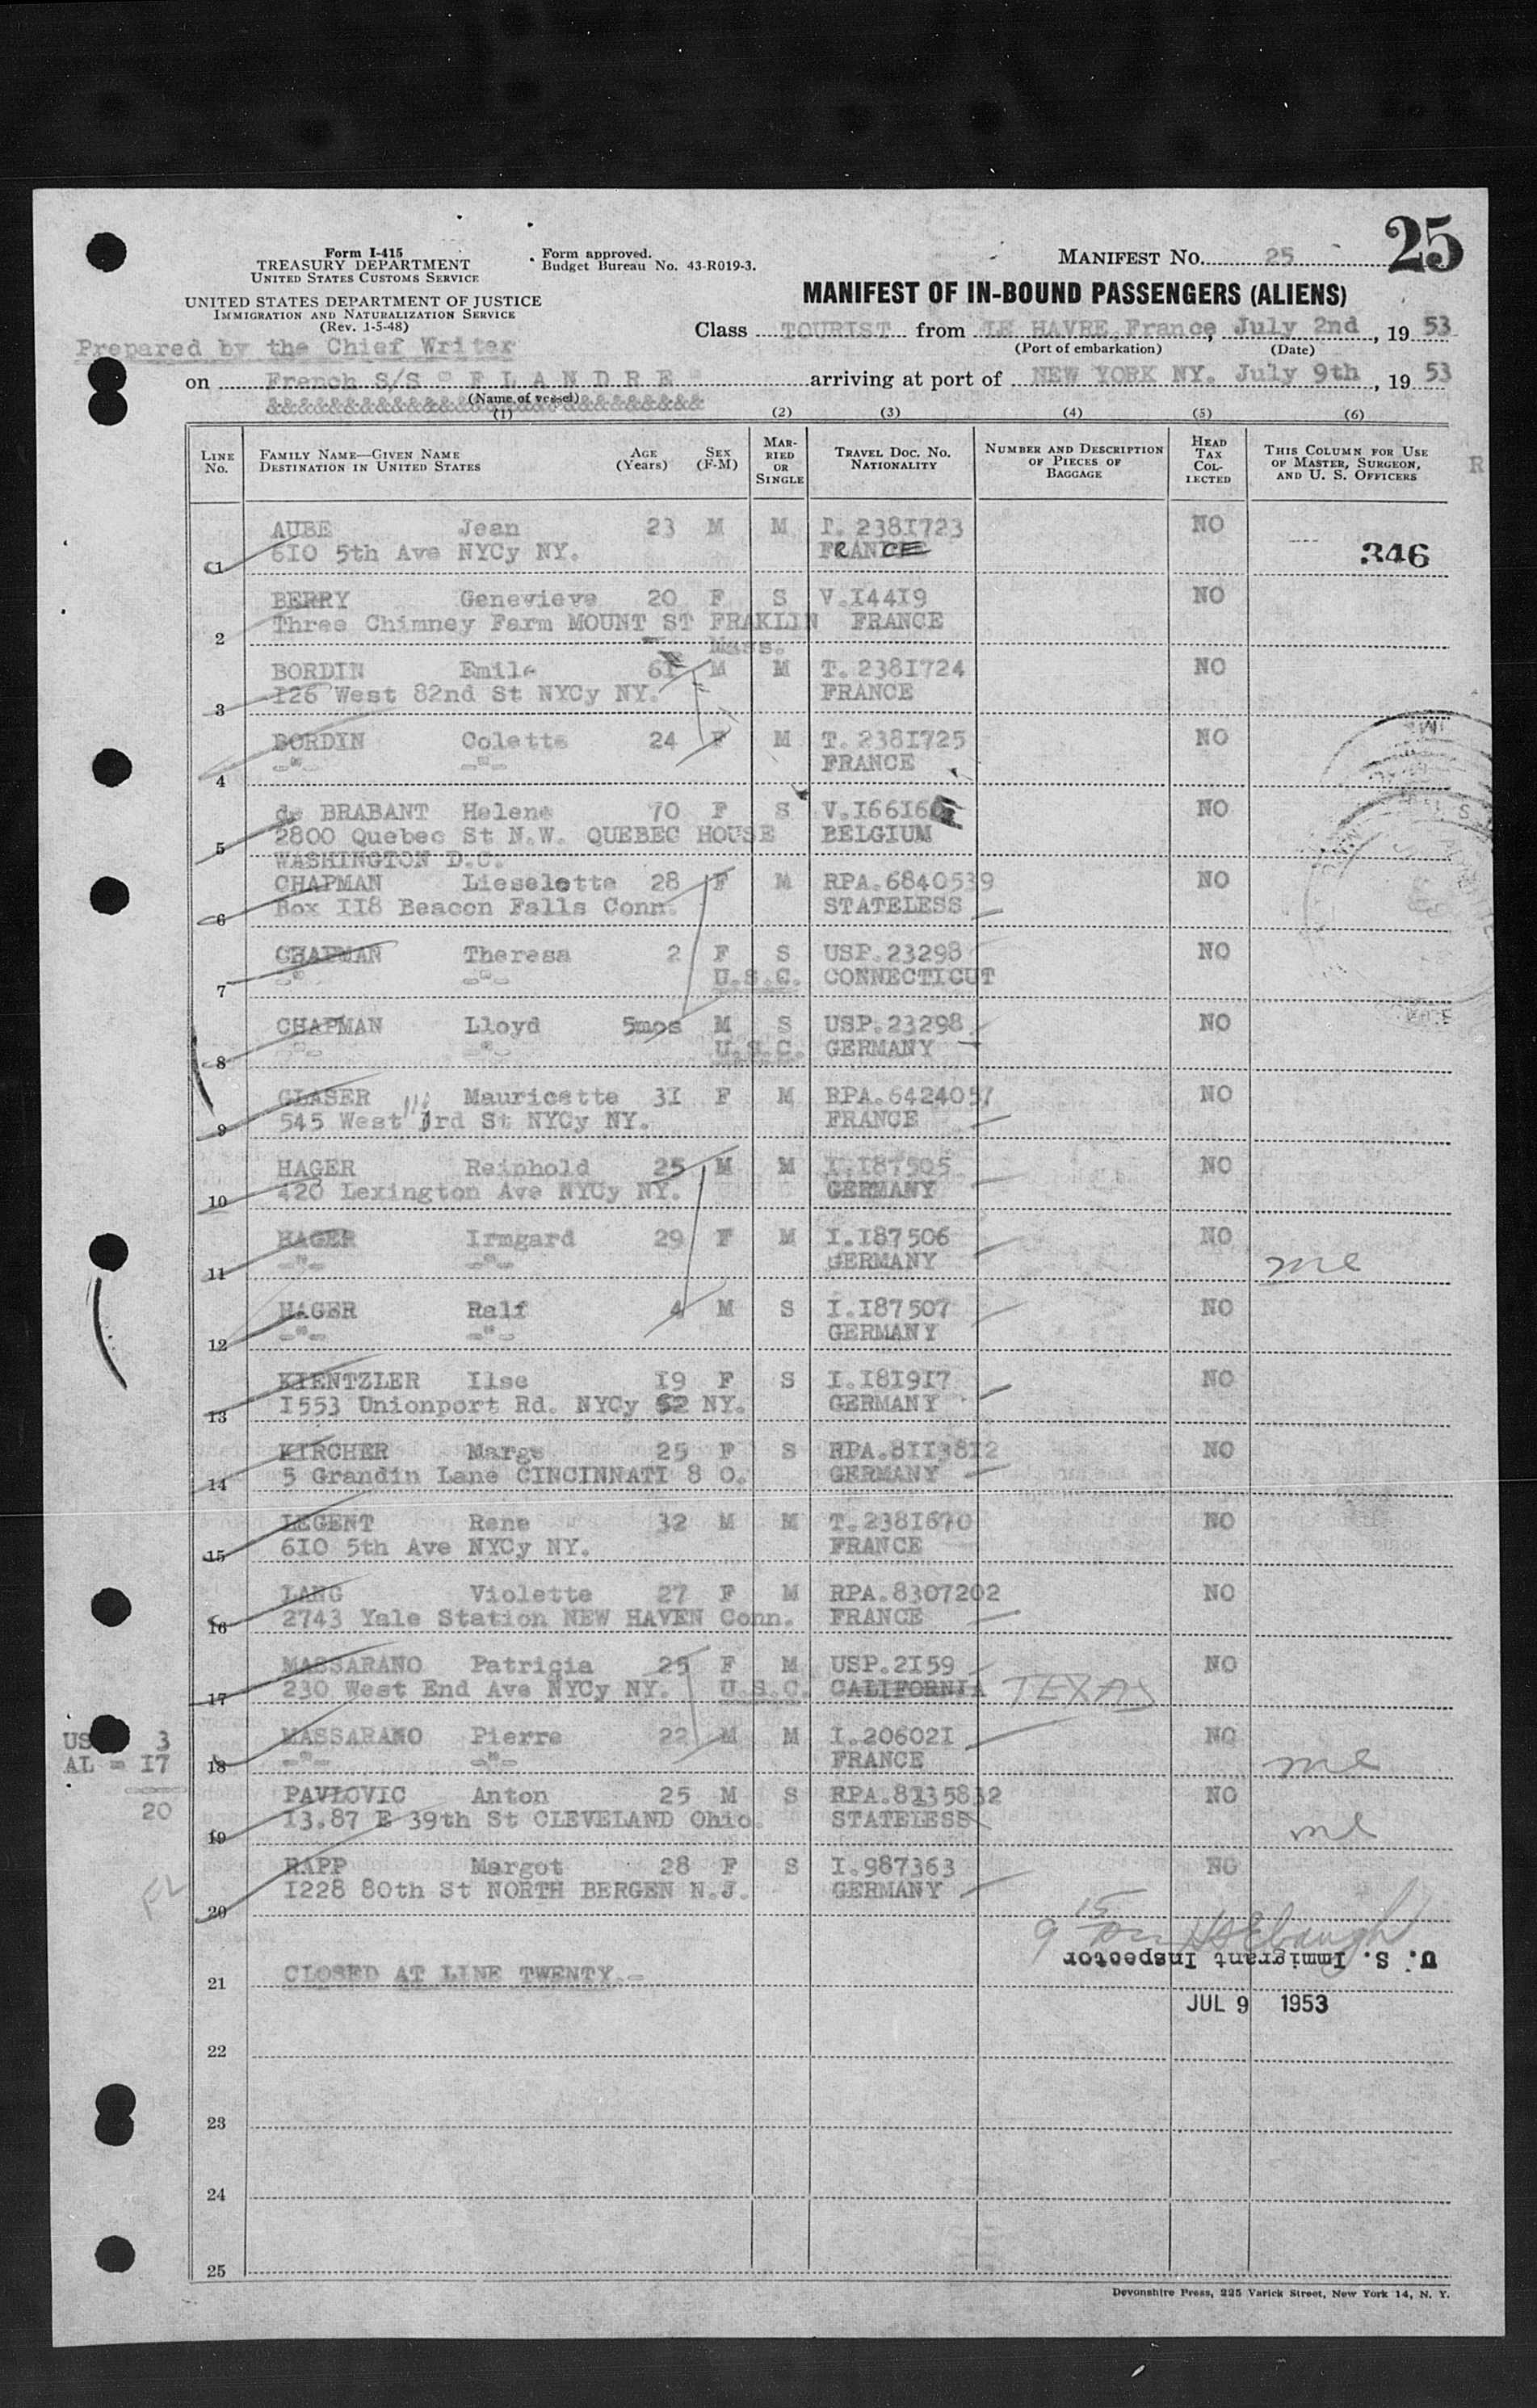 25
Form I-415
TREASURY DEPARTMENT
UNITED STATES CUSTOMS SERVICE
Form approved.
Budget Bureau No. 43-R019-3.
MANIFEST No. 25
UNITED STATES DEPARTMENT OF JUSTICE
IMMIGRATION AND NATURALIZATION SERVICE
(Rev. 1-5-48)
MANIFEST OF IN-BOUND PASSENGERS (ALIENS)
Prepared by the Chief Writer
Class TOURIST from LE HAVRE, France, July 2nd, 1953
(Port of embarkation) (Date)
on French S/S " F L A N D R E " arriving at port of NEW YORK NY. July 9th, 1953
(Name of vessel)
(1) (2) (3) (4) (5) (6)
LINE No. FAMILY NAME—GIVEN NAME DESTINATION IN UNITED STATES AGE (Years) SEX (F-M) MARRIED OR SINGLE TRAVEL DOC. No. NATIONALITY NUMBER AND DESCRIPTION OF PIECES OF BAGGAGE HEAD TAX COLLECTED THIS COLUMN FOR USE OF MASTER, SURGEON, AND U. S. OFFICERS
R
AUBE Jean 23 M M T. 2381723 NO
1 610 5th Ave NYCy NY. FRANCE 346
BERRY Genevieve 20 F S V.14419 NO
2 Three Chimney Farm MOUNT ST FRAKLIN FRANCE
Mass.
BORDIN Emile 61 M M T. 2381724 NO
3 126 West 82nd St NYCy NY. FRANCE
BORDIN Colette 24 F M T. 2381725 NO
4 -"- -"- FRANCE
de BRABANT Helene 70 F S V.16616 NO
5 2800 Quebec St N.W. QUEBEC HOUSE BELGIUM
WASHINGTON D.C.
CHAPMAN Lieselotte 28 F M RPA.6840539 NO
6 Box 118 Beacon Falls Conn. STATELESS
CHAPMAN Theresa 2 F S USP.23298 NO
7 -"- -"- U.S.C. CONNECTICUT
CHAPMAN Lloyd 5mos M S USP.23298 NO
8 -"- -"- U.S.C. GERMANY
GLASER Mauricette 31 F M RPA.6424057 NO
9 545 West rd St NYCy NY. FRANCE
HAGER Reinhold 25 M M I.187505 NO
10 420 Lexington Ave NYCy NY. GERMANY
HAGER Irmgard 29 F M I.187506 NO
11 -"- -"- GERMANY me
HAGER Ralf 4 M S I.187507 NO
12 -"- -"- GERMANY
KIENTZLER Ilse 19 F S I.181917 NO
13 1553 Unionport Rd. NYCy 62 NY. GERMANY
KIRCHER Marge 25 F S RPA.8113812 NO
14 5 Grandin Lane CINCINNATI 8 O. GERMANY
LEGENT Rene 32 M M T.2381670 NO
15 610 5th Ave NYCy NY. FRANCE
LANG Violette 27 F M RPA.8307202 NO
16 2743 Yale Station NEW HAVEN Conn. FRANCE
MASSARANO Patricia 25 F M USP.2159 NO
17 230 West End Ave NYCy NY. U.S.C. CALIFORNIA TEXAS
MASSARANO Pierre 22 M M I.206021 NO
18 -"- -"- FRANCE me
US 3
AL = 17
20
PAVLOVIC Anton 25 M S RPA.8135832 NO
19 13.87 E 39th St CLEVELAND Ohio. STATELESS me
RAPP Margot 28 F S I.987363 NO
20 1228 80th St NORTH BERGEN N.J. GERMANY
U. S. Immigrant Inspector
21 CLOSED AT LINE TWENTY.-
JUL 9 1953
22
23
24
25
Devonshire Press, 225 Varick Street, New York 14, N. Y.